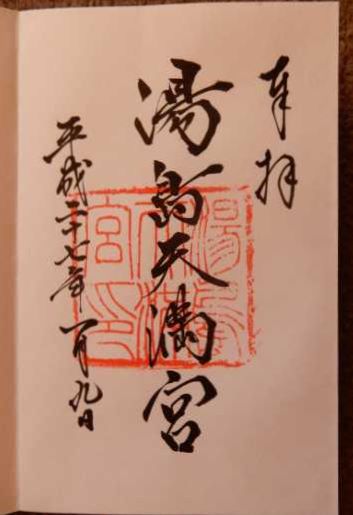 奉拝
湯島天満宮
平成二十七年一月九日
湯島天満宮印